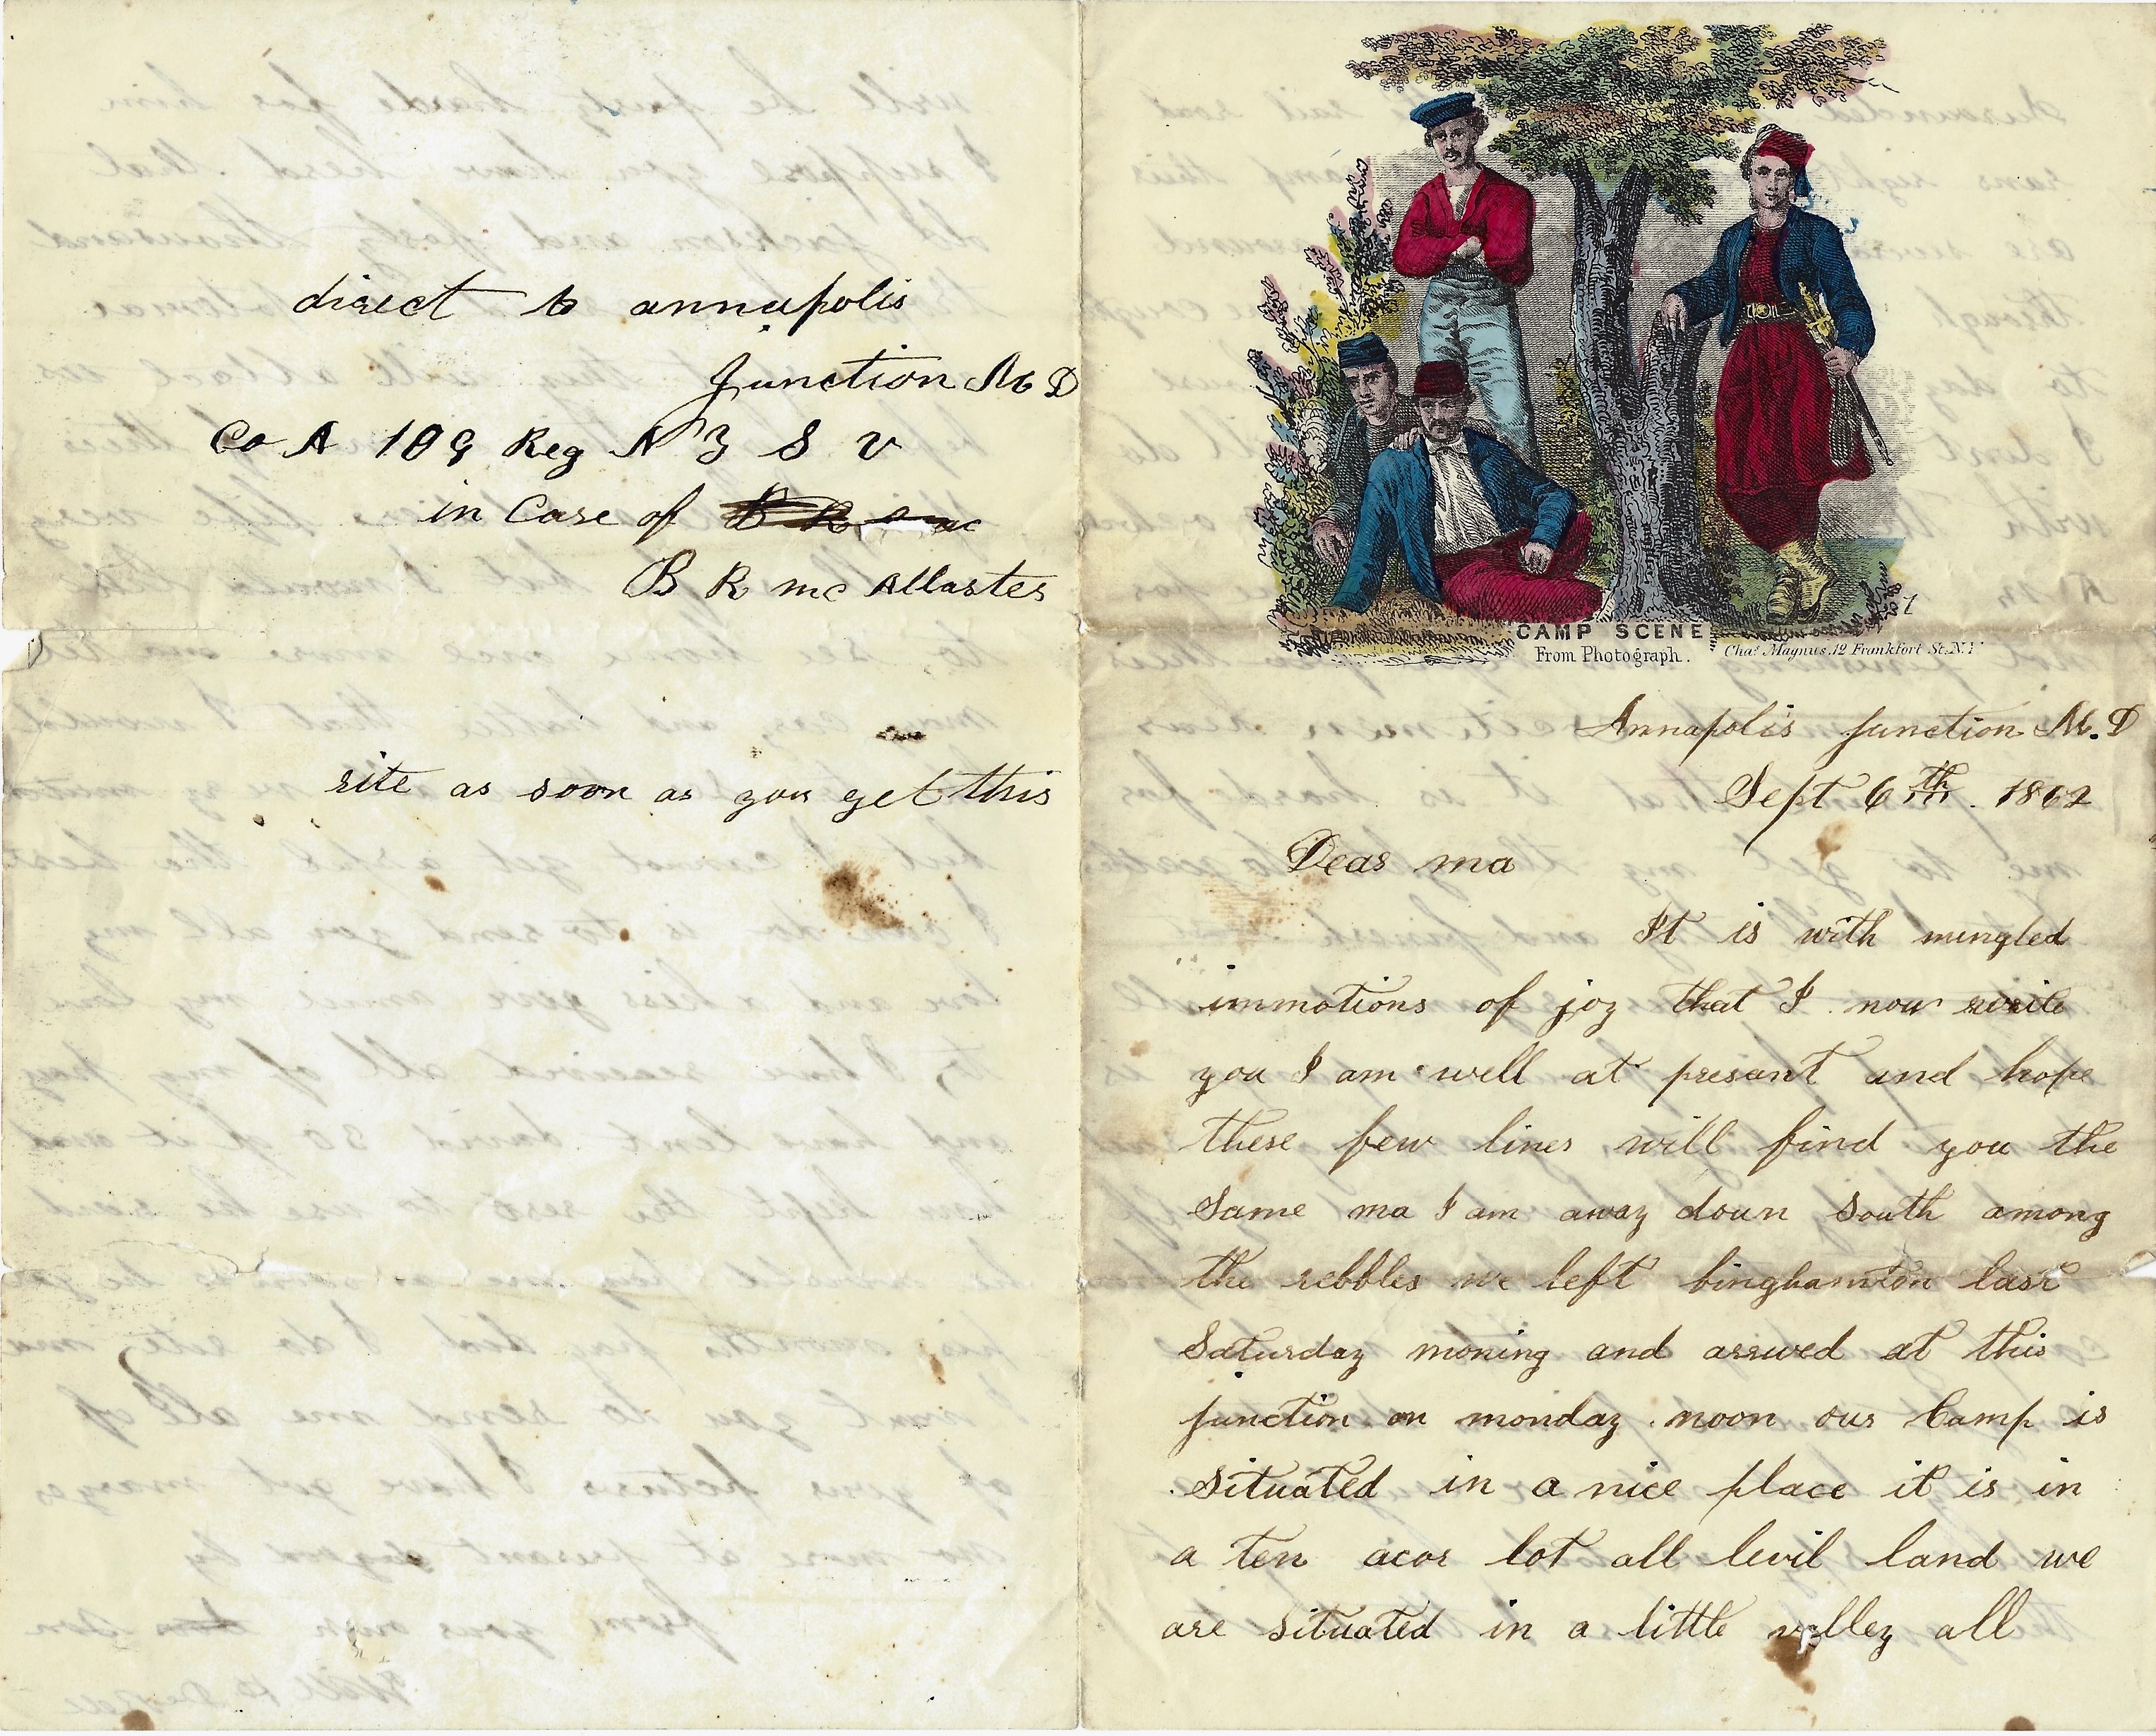 direct to annapolis
Junction M D
Co A 109 Reg N Y S V
in Care of
B R mc Allaster
rite as soon as you get this
CAMP SCENE
From Photograph.
Chas. Magnus, 12 Frankfort St. N.Y
Annapolis Junction M.D
Sept 6th. 1862
Dear ma
It is with mingled
immotions of joy that I now write
you I am well at present and hope
these few lines will find you the
Same ma I am away down South among
the rebbles we left binghamton last
Saturday moning and arrived at this
junction on monday noon our Camp is
Situated in a nice place it is in
a ten acor lot all levil land we
are situated in a little valley all